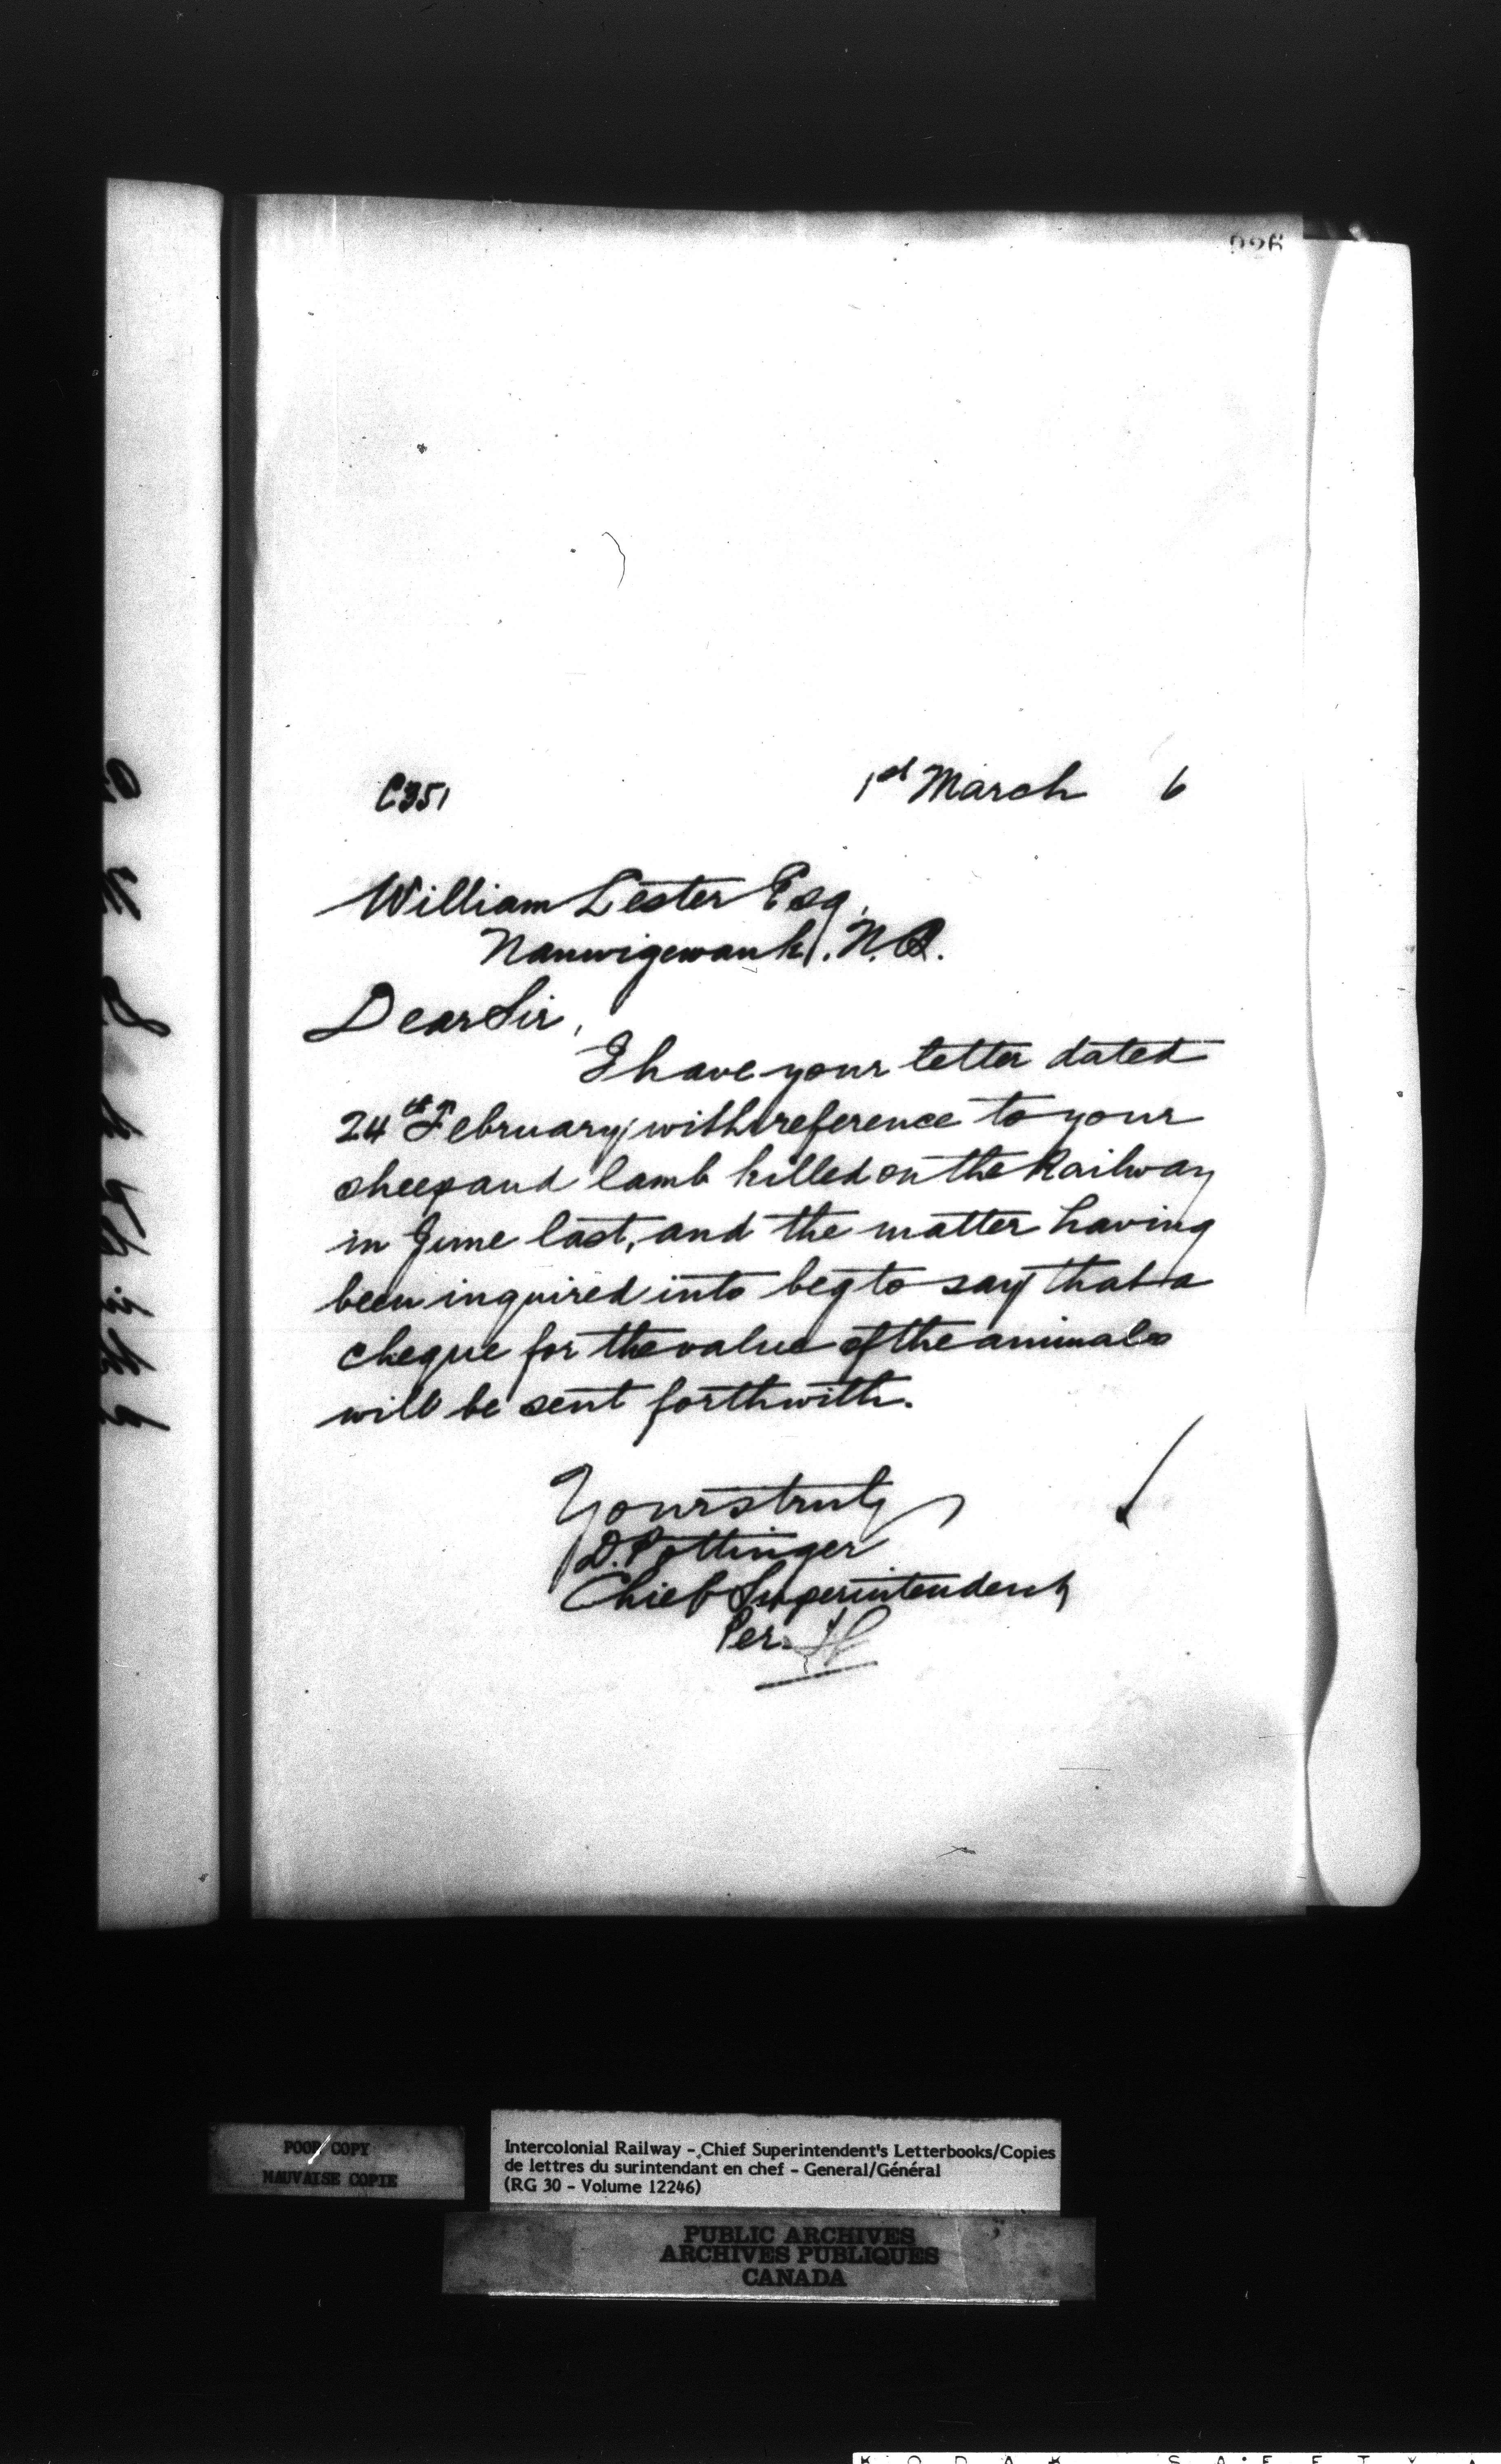 C351
1st March 6
William Lester Esq.
Nauwigewauk. N.B.
Dear Sir,
I have your letter dated
24th February, with reference to your
sheep and lamb killed on the Railway
in June last, and the matter having
been inquired into beg to say that a
cheque for the value of the animals
will be sent forthwith.
Yours truly
D. Pottinger
Chief Superintendent
Per.
POOR COPY
MAUVAISE COPIE
Intercolonial Railway - Chief Superintendent's Letterbooks/Copies
de lettres du surintendant en chef - General/Général
(RG 30 - Volume 12246)
PUBLIC ARCHIVES
ARCHIVES PUBLIQUES
CANADA
KODAK SAFETY